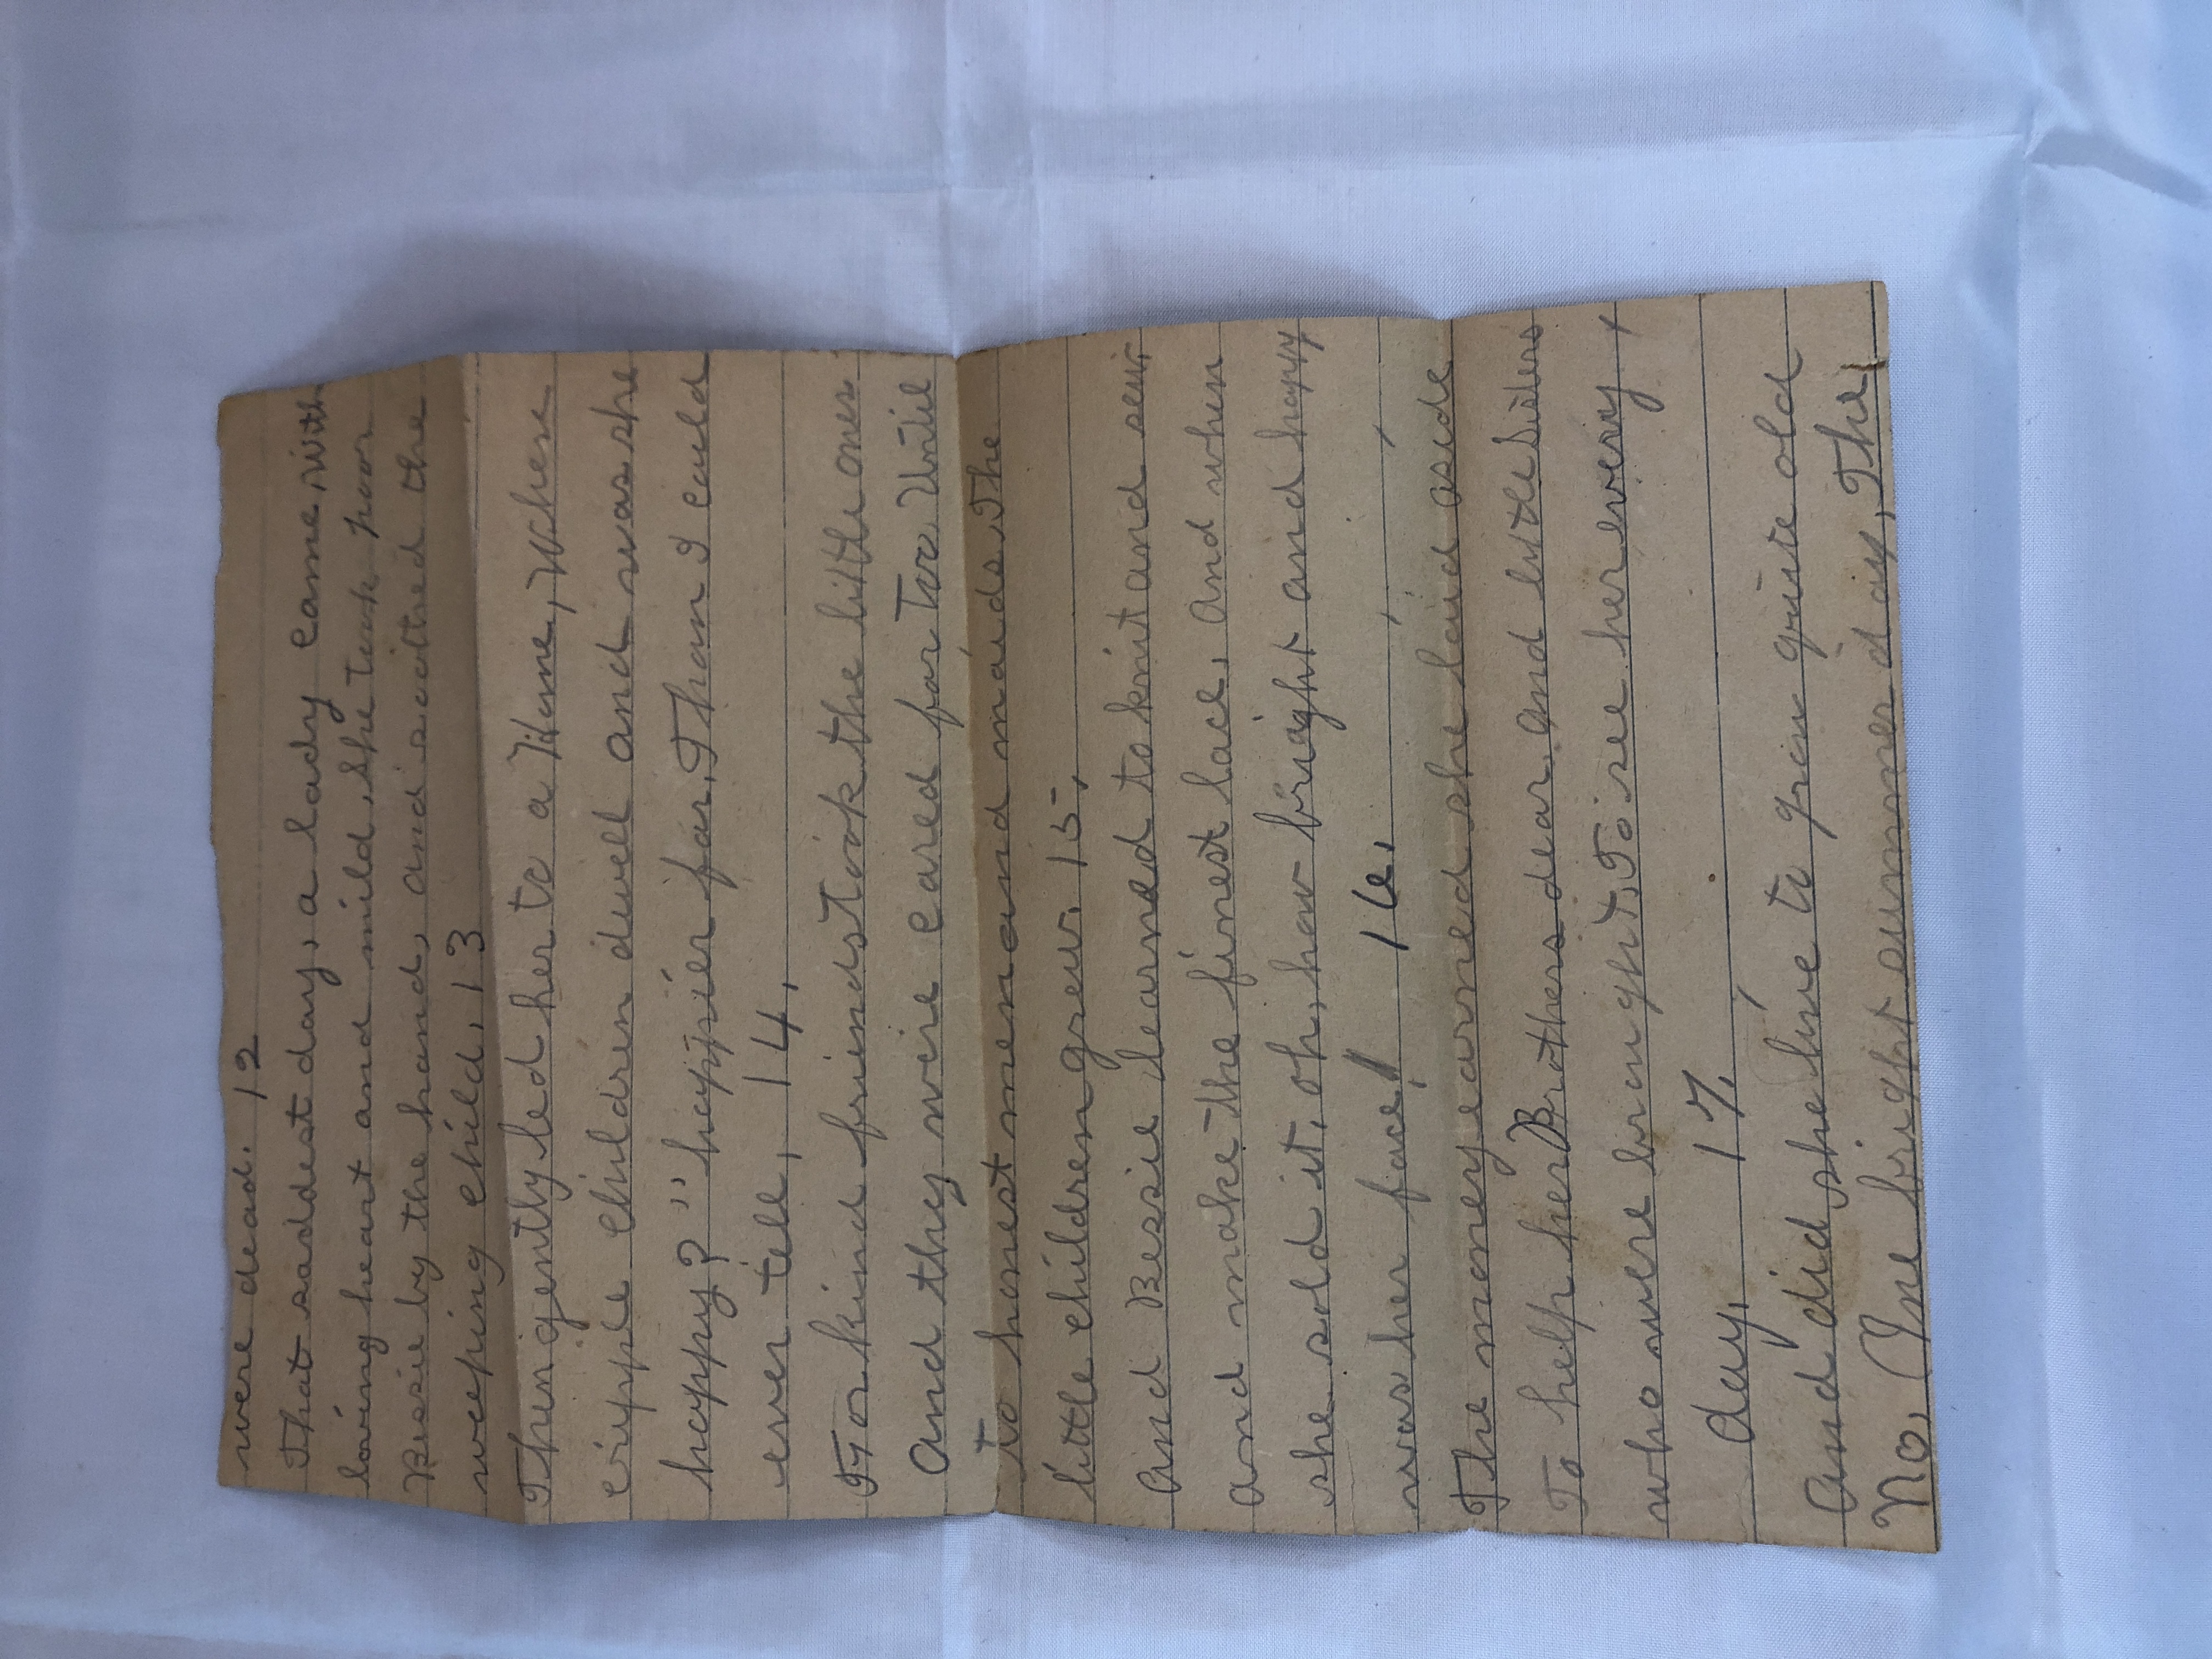 were dead. 12
That saddest day, a lady came, with
loving heart and mild, She took poor
Bessie by the hand, and soothed the
weeping child, 13
Then gently led her to a Home, Where
cripple children dwell and was she
happy? " happier far, Than I could
ever tell, 14,
For kind friends Took the little ones
And they were cared for Too, Until
to honest men and maids, The
little children grew. 15,
And Bessie learned to knit and sew,
and make the finest lace, and when
she sold it, oh, how bright and happy
was her face! 16,
The money earned she laid aside
To help her Brothers dear, and little Sisters
who were brought, To see her every
day, 17,
And did she live to grow quite old
No, One bright summer day, The